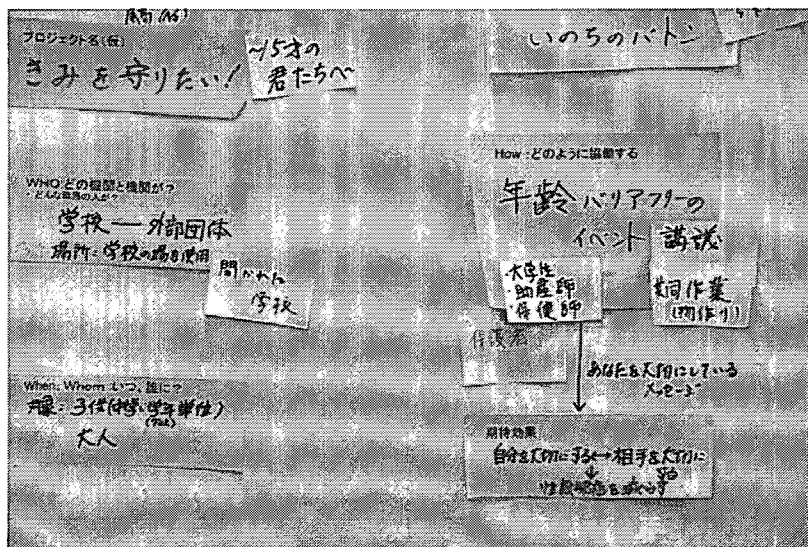 プロジェクト名(仮)
きみを守りたい!
~15才の
君たちへ
いのちのバトン
WHO:どの機関と機関が?
学校 ── 外部団体
場所:学校の場を使用
開かれた
学校
When、Whom:いつ、誰に?
大人
How:どのように協働する
年齢バリアフリーの
イベント
講談
共同作業
(物作り)
大学生
助産師
保健師
保護者
あなたを大切にしている
メッセージ
期待効果
自分を大切にする⟷相手を大切に
する